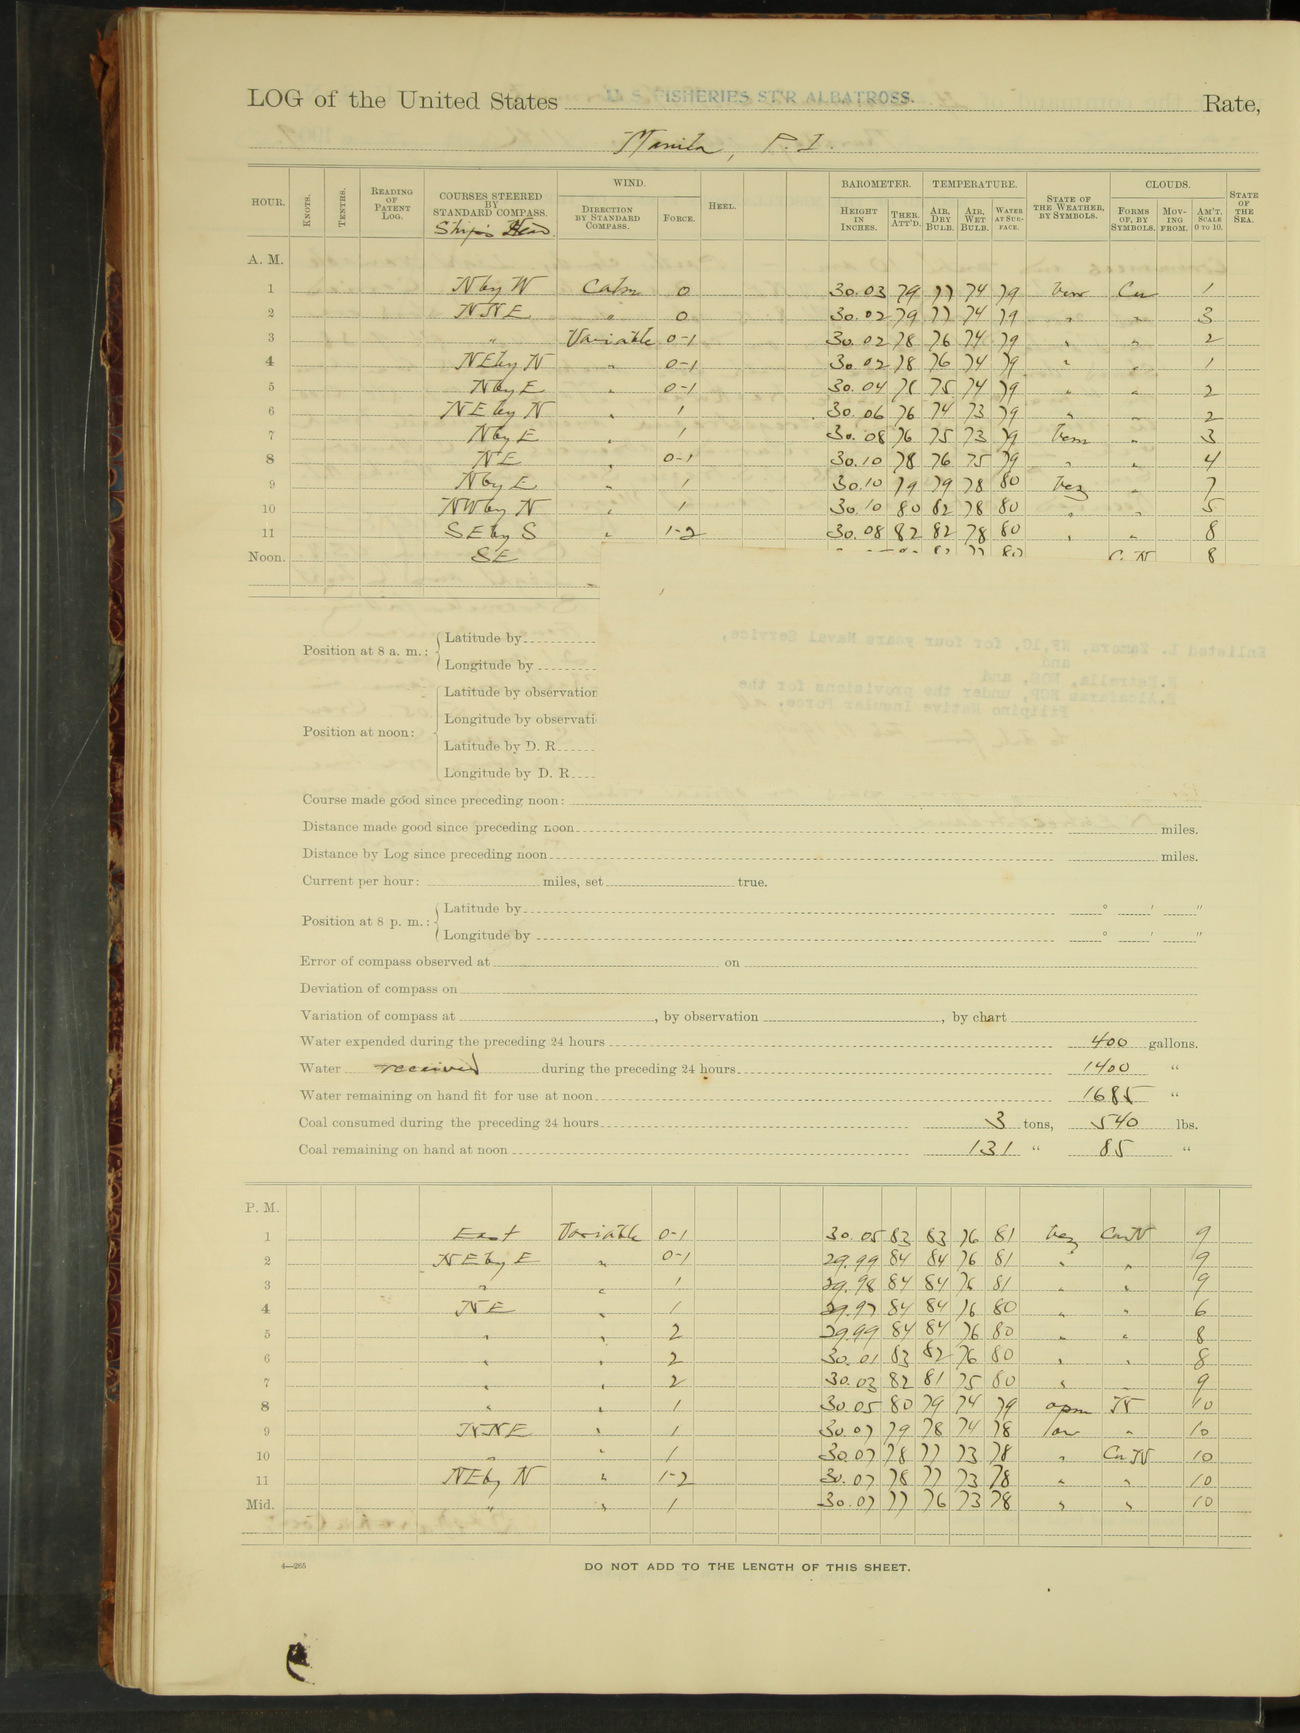 LOG of the United States U. S. FISHERIES ST'R ALBATROSS. Rate,
Manila, P. I.
HOUR. KNOTS. TENTHS. READING OF PATENT LOG. COURSES STEERED BY STANDARD COMPASS. Ship's Head WIND. DIRECTION BY STANDARD COMPASS. FORCE. HEEL. BAROMETER. HEIGHT IN INCHES. THER. ATT'D. TEMPERATURE. AIR, DRY BULB. AIR, WET BULB. WATER AT SURFACE. STATE OF THE WEATHER, BY SYMBOLS. CLOUDS. FORMS OF, BY SYMBOLS. MOVING FROM. AM'T. SCALE 0 TO 10. STATE OF THE SEA.
A. M.
1 N by W Calm 0 30.03 79 77 74 79 Cu 1
2 NNE " 0 30.02 79 77 74 79 " " 3
3 " Variable 0-1 30.02 78 76 74 79 " " 2
4 NE by N " 0-1 30.02 78 76 74 79 " " 1
5 N by E " 0-1 30.04 76 75 74 79 " " 2
6 NE by N " 1 30.06 76 74 73 79 " " 2
7 N by E " 1 30.08 76 75 73 79 bcm " 3
8 NE " 0-1 30.10 78 76 75 79 " " 4
9 N by E " 1 30.10 79 79 78 80 bcz " 7
10 NW by N " 1 30.10 80 82 78 80 " " 5
11 SE by S " 1-2 30.08 82 82 78 80 " " 8
Noon. SE 80 8
Position at 8 a. m.: Latitude by
Longitude by
Position at noon: Latitude by observation
Longitude by observati
Latitude by D. R.
Longitude by D. R.
Course made good since preceding noon:
Distance made good since preceding noon miles.
Distance by Log since preceding noon miles.
Current per hour: miles, set true.
Position at 8 p. m.: Latitude by ° ′ ″
Longitude by ° ′ ″
Error of compass observed at on
Deviation of compass on
Variation of compass at , by observation , by chart
Water expended during the preceding 24 hours 400 gallons.
Water received during the preceding 24 hours 1400 "
Water remaining on hand fit for use at noon 1685 "
Coal consumed during the preceding 24 hours 3 tons, 540 lbs.
Coal remaining on hand at noon 131 " 85 "
P. M.
1 East Variable 0-1 30.05 83 83 76 81 bcz CuN 9
2 NE by E " 0-1 29.99 84 84 76 81 " " 9
3 " " 1 29.98 84 84 76 81 " " 9
4 NE " 1 29.97 84 84 76 80 " " 6
5 " " 2 29.99 84 84 76 80 " " 8
6 " " 2 30.01 83 82 76 80 " " 8
7 " " 2 30.03 82 81 75 80 " " 9
8 " " 1 30.05 80 79 74 79 N 10
9 NNE " 1 30.07 79 78 74 78 " 10
10 " " 1 30.07 78 77 73 78 " CuN 10
11 NE by N " 1-2 30.07 78 77 73 78 " " 10
Mid. " " 1 30.07 77 76 73 78 " " 10
4—265
DO NOT ADD TO THE LENGTH OF THIS SHEET.